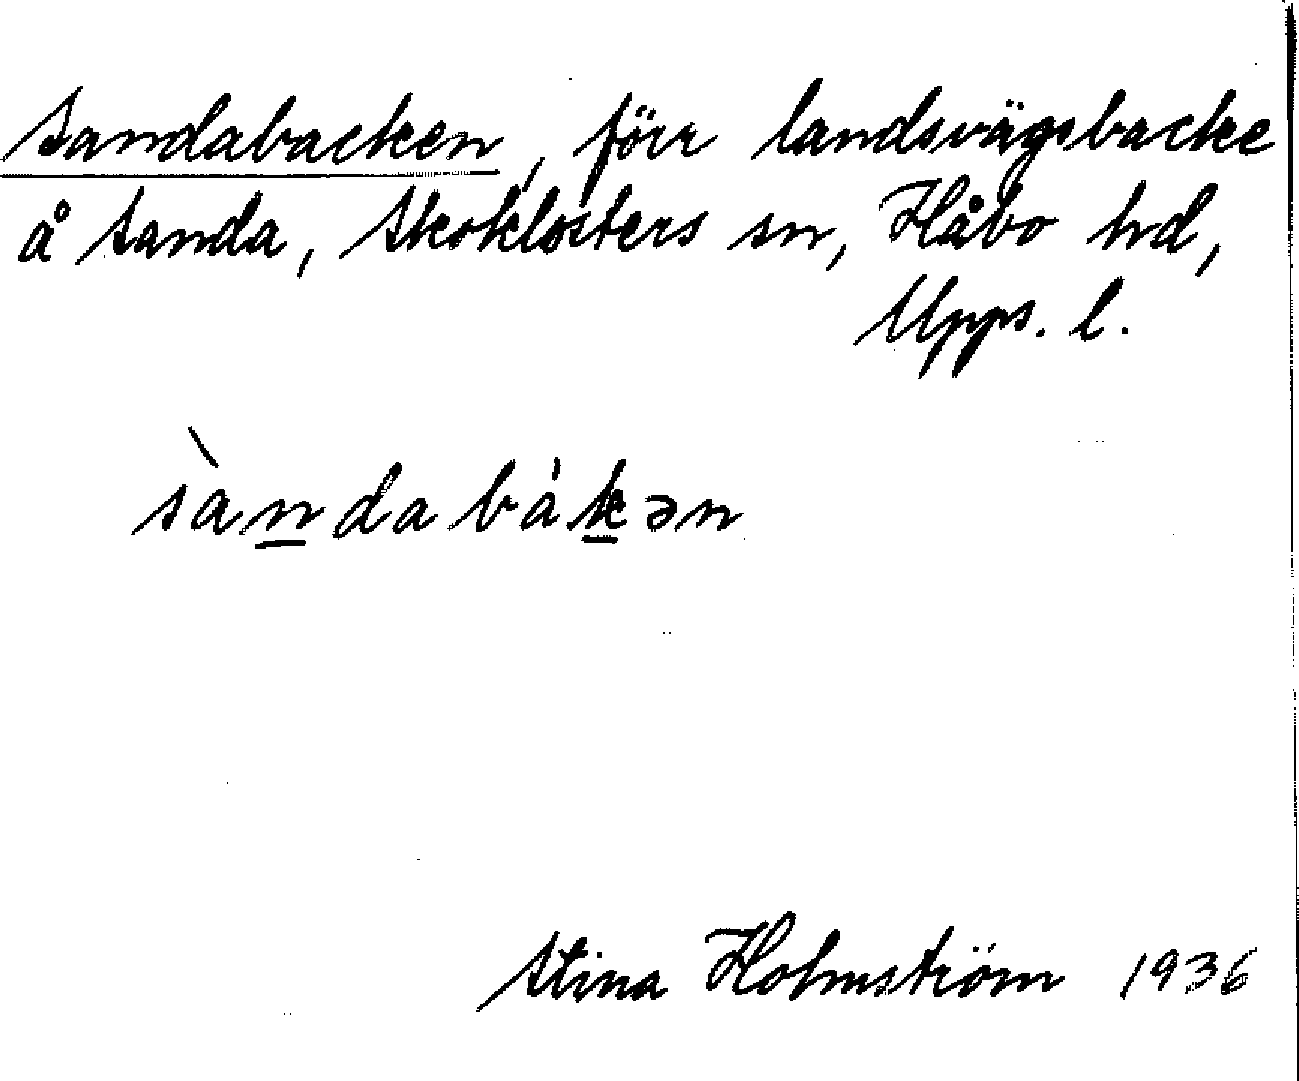 Sandabacken, förr landsvägsbacke
å Sanda, Skoklosters sn, Håbo hd,
Upps. l.
sàndabákən
Stina Holmström 1936